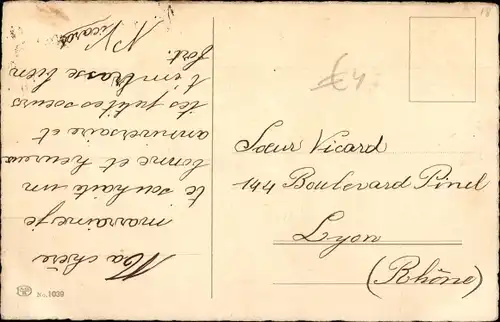 Ma chère
marraine je
te souhaite un
bonne et heureux
anniversaire et
tes petites soeurs
t'embrasse bien
fort.
N Vicard
Sœur Vicard
144 Boulevard Pinel
Lyon
(Rhône)
£4
No. 1039
18